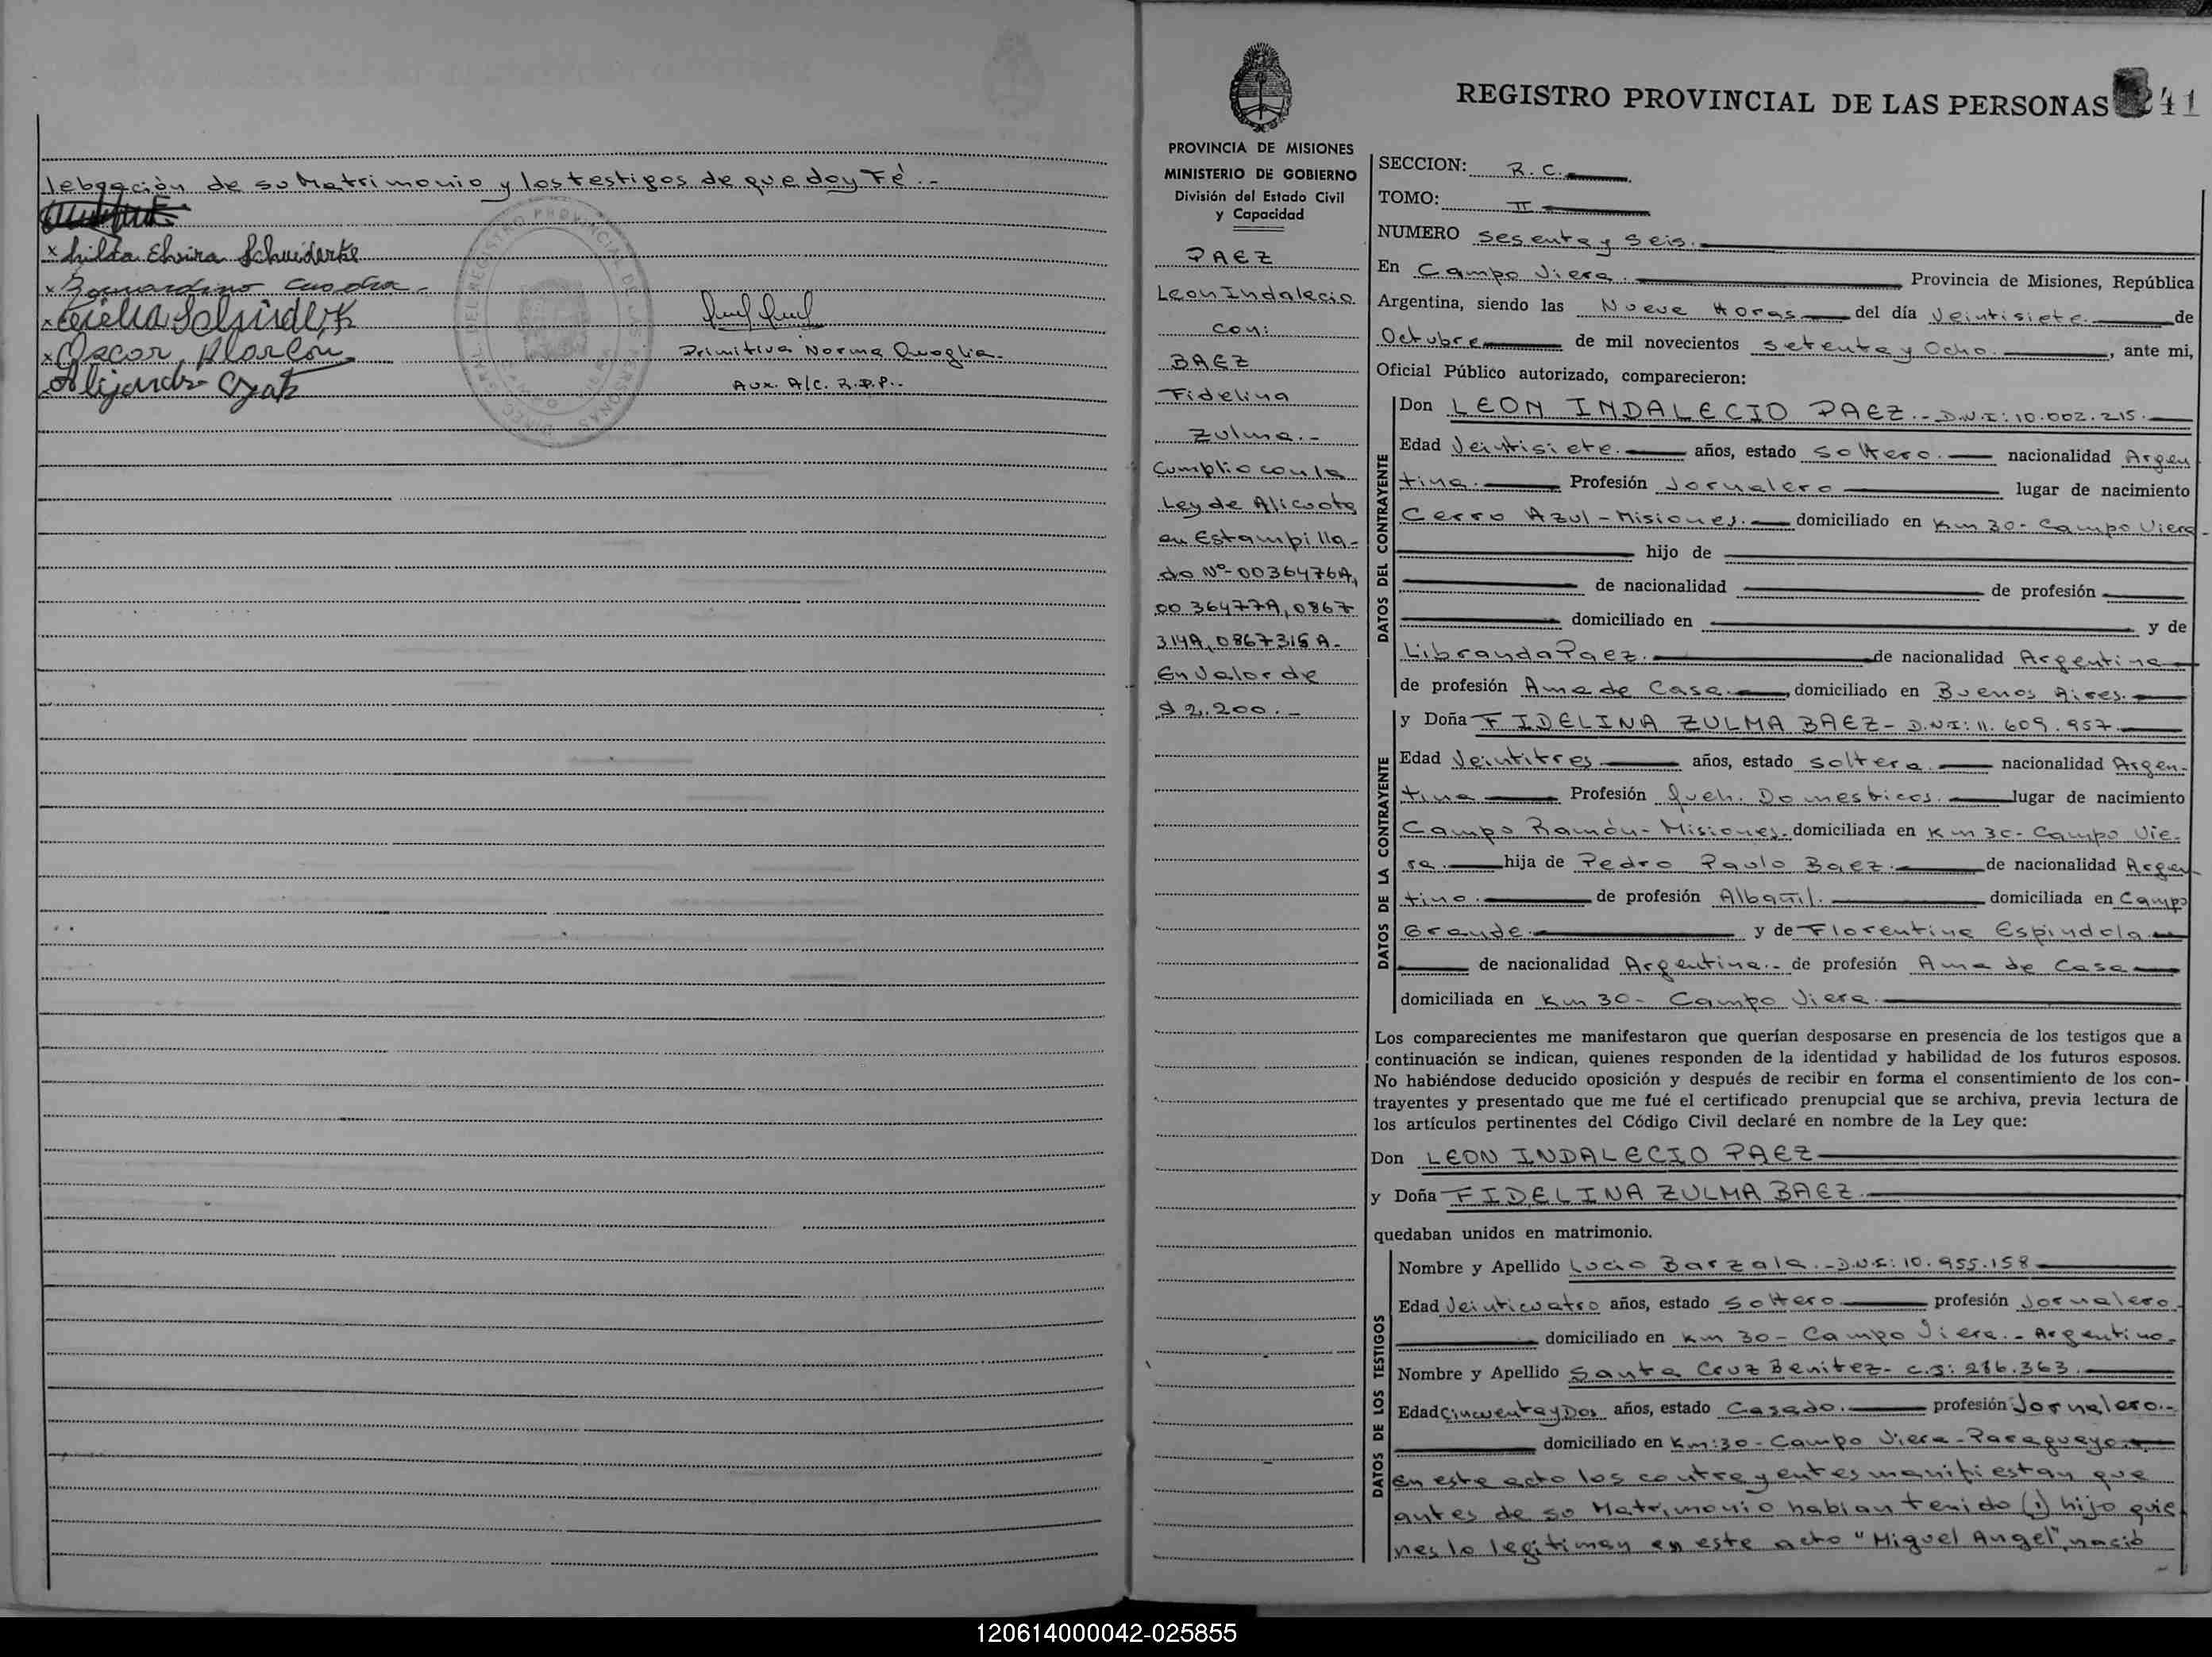 lebración de su Matrimonio y los testigos de que doy Fé.-
x Hilda Elvira Schneiderke
x Bernardino
x Cecilia
x Oscar Alarcón
Primitiva Norma Quaglia.-
Aux. A/c. R.P.P.-
REGISTRO PROVINCIAL DE LAS PERSONAS 241
PROVINCIA DE MISIONES
MINISTERIO DE GOBIERNO
División del Estado Civil
y Capacidad
PAEZ
Leon Indalecio
con:
BAEZ
Fidelina
Zulma.-
Cumplio con la
Ley de Alicuota
en Estampilla-
do Nº-0036476A,
0036477A, 0867
314A, 0867315A-
En Valor de
$ 2.200.-
SECCION: R. C.
TOMO: II
NUMERO Sesenta y Seis.
En Campo Viera. Provincia de Misiones, República
Argentina, siendo las Nueve Horas del día Veintisiete de
Octubre de mil novecientos setenta y Ocho., ante mi,
Oficial Público autorizado, comparecieron:
DATOS DEL CONTRAYENTE
Don LEON INDALECIO PAEZ.- D.N.I: 10.002.215.
Edad Veintisiete. años, estado Soltero. nacionalidad Argen
tina. Profesión Jornalero lugar de nacimiento
Cerro Azul - Misiones. domiciliado en Km 30- Campo Viera
hijo de
de nacionalidad de profesión
domiciliado en y de
Libranda Paez. de nacionalidad Argentina
de profesión Ama de Casa., domiciliado en Buenos Aires.
DATOS DE LA CONTRAYENTE
y Doña FIDELINA ZULMA BAEZ- D.N.I: 11.609.957.
Edad Veintitres años, estado soltera. nacionalidad Argen-
tina Profesión Queh. Domesticos. lugar de nacimiento
Campo Ramón- Misiones. domiciliada en Km 30- Campo Vie-
ra. hija de Pedro Paulo Baez. de nacionalidad Argen
tino. de profesión Albañil. domiciliada en Campo
Grande. y de Florentina Espindola.
de nacionalidad Argentina.- de profesión Ama de Casa
domiciliada en Km 30- Campo Viera.
Los comparecientes me manifestaron que querían desposarse en presencia de los testigos que a
continuación se indican, quienes responden de la identidad y habilidad de los futuros esposos.
No habiéndose deducido oposición y después de recibir en forma el consentimiento de los con-
trayentes y presentado que me fué el certificado prenupcial que se archiva, previa lectura de
los artículos pertinentes del Código Civil declaré en nombre de la Ley que:
Don LEON INDALECIO PAEZ
y Doña FIDELINA ZULMA BAEZ.
quedaban unidos en matrimonio.
DATOS DE LOS TESTIGOS
Nombre y Apellido Lucio Barzala.- D.N.I: 10.955.158
Edad Veinticuatro años, estado Soltero profesión Jornalero
domiciliado en Km 30- Campo Viera.- Argentino-
Nombre y Apellido Santa Cruz Benitez- C.I: 286.363.
Edad Cincuenta y Dos años, estado Casado. profesión Jornalero.-
domiciliado en Km:30- Campo Viera- Paraguayo.
En este acto los contrayentes manifiestan que
antes de su Matrimonio habian tenido (1) hijo quie
nes lo legitiman en este acto "Miguel Angel", nació
120614000042-025855